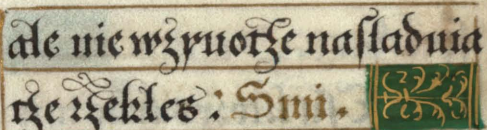 ale nie wzywotze naſladuia
tze rzekles: Smi.